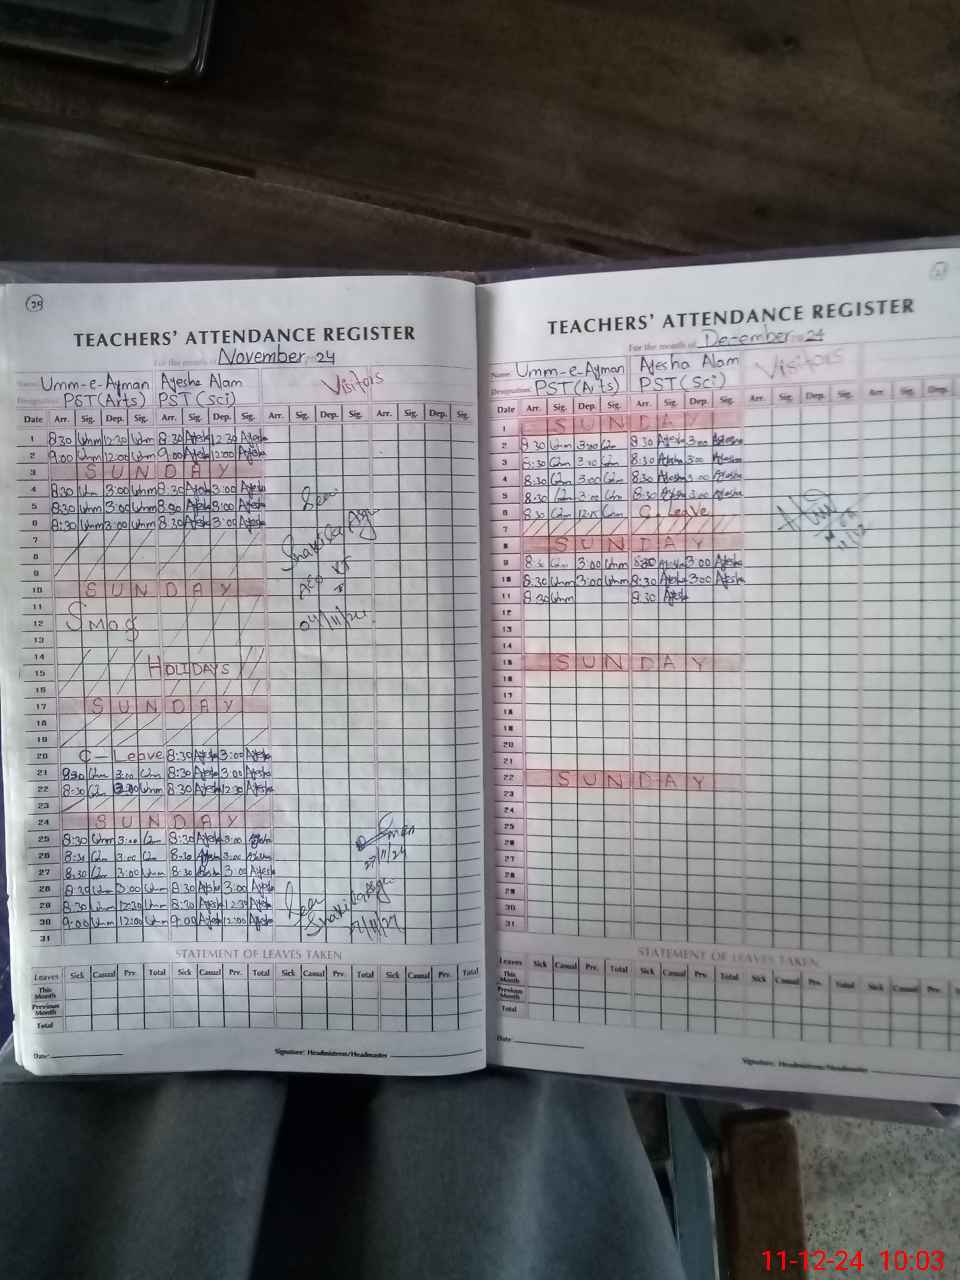 29
TEACHERS' ATTENDANCE REGISTER
For the month of November 24
Name Umm-e-Ayman Ayesha Alam Visitors
Designation PST(Arts) PST(Sci)
Date Arr. Sig. Dep. Sig. Arr. Sig. Dep. Sig. Arr. Sig. Dep. Sig. Arr. Sig. Dep. Sig.
1 8:30 Umm 12:30 Umm 8:30 Ayesha 12:30 Ayesha
2 9:00 Umm 12:00 Umm 9:00 Ayesha 12:00 Ayesha
3 SUNDAY
4 8:30 Umm 3:00 Umm 8:30 Ayesha 3:00 Ayesha
5 8:30 Umm 3:00 Umm 8:30 Ayesha 3:00 Ayesha
6 8:30 Umm 3:00 Umm 8:30 Ayesha 3:00 Ayesha
7
8
9
10 SUNDAY
11
12 Smog 04/11/24
13
14
15 HOLIDAYS
16
17 SUNDAY
18
19
20 C-Leave 8:30 Ayesha 3:00 Ayesha
21 8:30 Umm 3:00 Umm 8:30 Ayesha 3:00 Ayesha
22 8:30 Umm Umm 8:30 Ayesha 12:30 Ayesha
23
24 SUNDAY
25 8:30 Umm 3:00 Umm 8:30 Ayesha 3:00 Ayesha
26 8:30 Umm 3:00 Umm 8:30 Ayesha 3:00 Ayesha 27/11/24
27 8:30 Umm 3:00 Umm 8:30 Ayesha 3:00 Ayesha
28 8:30 Umm 3:00 Umm 8:30 Ayesha 3:00 Ayesha
29 8:30 Umm 12:30 Umm 8:30 Ayesha 12:30 Ayesha
30 9:00 Umm 12:00 Umm 9:00 Ayesha 12:00 Ayesha
31
STATEMENT OF LEAVES TAKEN
Leaves Sick Casual Prv. Total Sick Casual Prv. Total Sick Casual Prv. Total Sick Casual Prv. Total
This Month
Previous Month
Total
Date:
Signature: Headmistress/Headmaster
TEACHERS' ATTENDANCE REGISTER
For the month of December 24
Name Umm-e-Ayman Ayesha Alam Visitors
Designation PST(Arts) PST(Sci)
Date Arr. Sig. Dep. Sig. Arr. Sig. Dep. Sig. Arr. Sig. Dep. Sig. Arr. Sig. Dep.
1 SUNDAY
2 8:30 Umm 3:00 Umm 8:30 Ayesha 3:00 Ayesha
3 8:30 Umm 3:00 Umm 8:30 Ayesha 3:00 Ayesha
4 8:30 Umm 3:00 Umm 8:30 Ayesha 3:00 Ayesha
5 8:30 Umm 3:00 Umm 8:30 Ayesha 3:00 Ayesha
6 8:30 Umm 12:15 Umm C. Leave
7
8 SUNDAY
9 8:30 Umm 3:00 Umm 8:30 Ayesha 3:00 Ayesha
10 8:30 Umm 3:00 Umm 8:30 Ayesha 3:00 Ayesha
11 8:30 Umm 8:30 Ayesha
12
13
14
15 SUNDAY
16
17
18
19
20
21
22 SUNDAY
23
24
25
26
27
28
29
30
31
STATEMENT OF LEAVES TAKEN
Leaves Sick Casual Prv. Total Sick Casual Prv. Total Sick Casual Prv. Total Sick Casual Prv.
This Month
Previous Month
Total
Date:
Signature: Headmistress/Headmaster
11-12-24 10:03